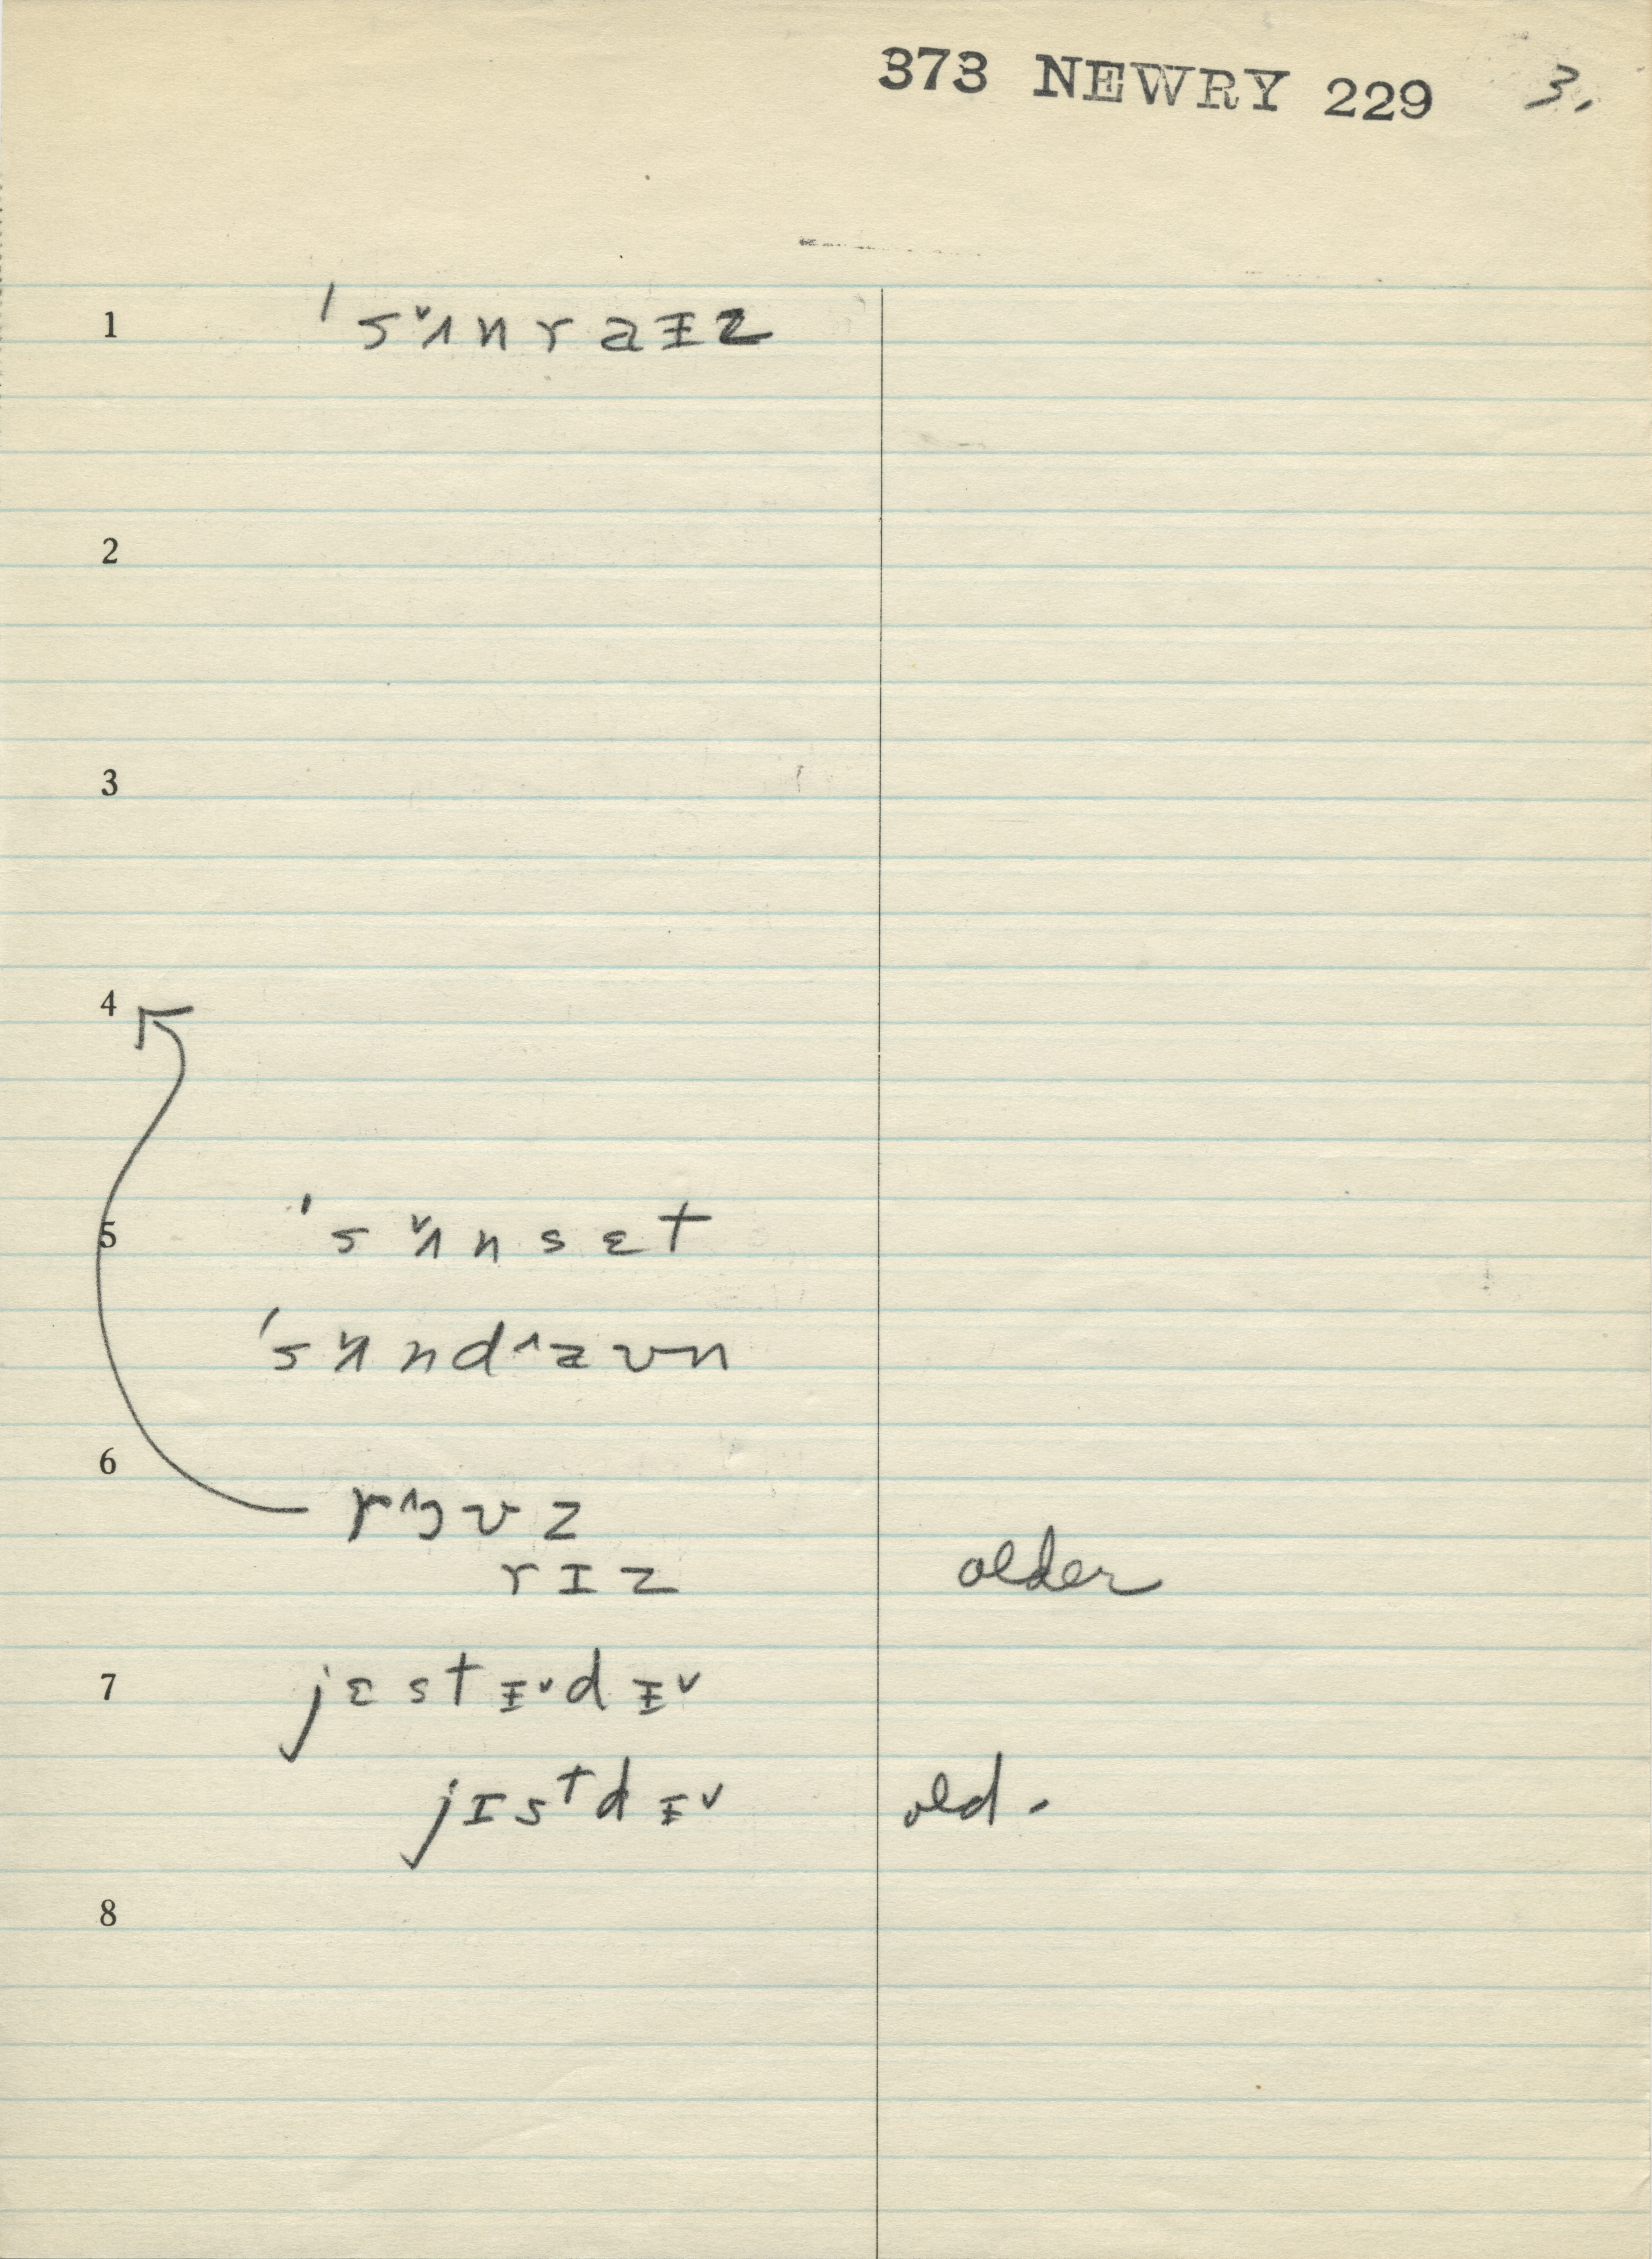 373 NEWRY 229 3.
1 ˈsʌ̌nraɪz
2
3
4
5 ˈsʌ̌nsɛt
ˈsʌ̌nd^aʊn
6
r^ɔʊz
rɪz older
7 jɛstɪˇdɪˇ
jɪstdɪˇ old.
8